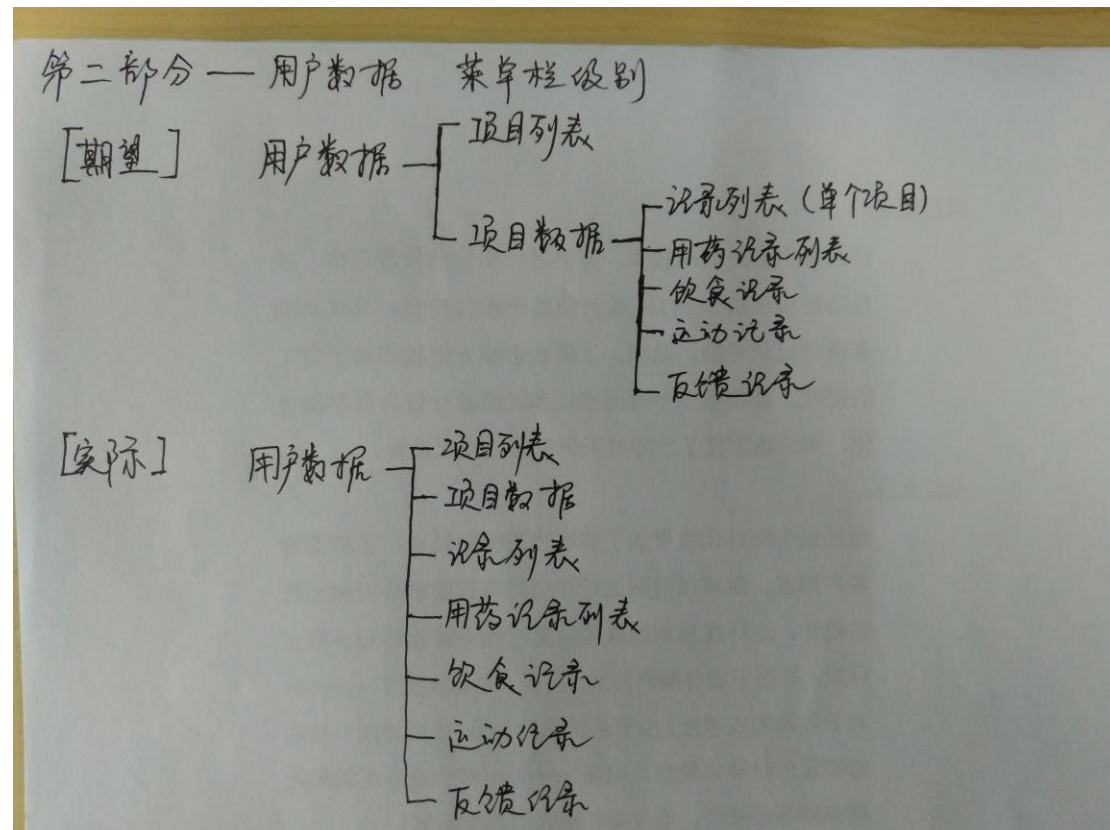 第二部分 — 用户数据 菜单栏级别
[期望] 用户数据
项目列表
项目数据
记录列表（单个项目）
用药记录列表
饮食记录
运动记录
反馈记录
[实际] 用户数据
项目列表
项目数据
记录列表
用药记录列表
饮食记录
运动记录
反馈记录